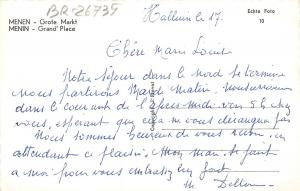 BR-26735
MENEN - Grote Markt
MENIN - Grand' Place
Echte Foto
10
Halluin le 17.
Chère
Notre séjour dans le Nord se termine
nous partirons Mardi Matin. Nous
dans le courant de l'après midi vers 5 h chez
vous, espérant que cela vous dérange pas
Nous sommes heureux de vous revoir, en
attendant ce plaisir, Mon mari se joint
à moi pour vous
M. Dell